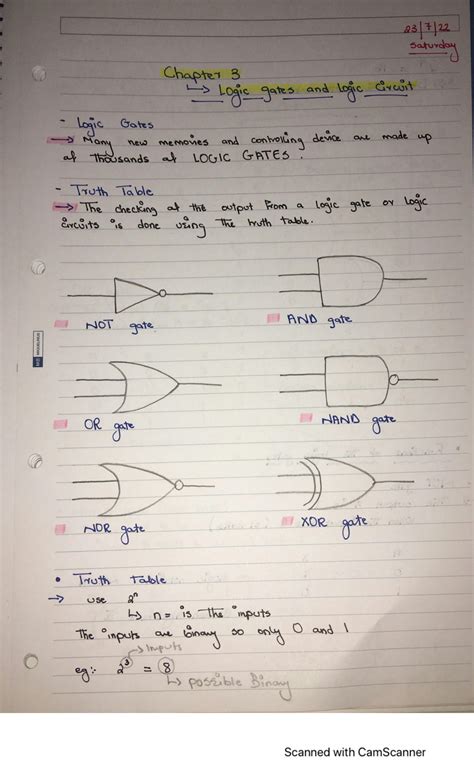 23/7/22
Saturday
Chapter 3
↳ Logic gates and logic circuit
- Logic Gates
→ Many new memories and controlling device are made up
of thousands of LOGIC GATES.
- Truth Table
→ The checking of the output from a logic gate or logic
circuits is done using the truth table.
NOT gate
AND gate
OR gate
NAND gate
NOR gate
XOR gate
• Truth table
→ use 2ⁿ
↳ n = is the inputs
The inputs are binary so only 0 and 1
→ Inputs
eg:- 2³ = 8
↳ possible Binary
Scanned with CamScanner